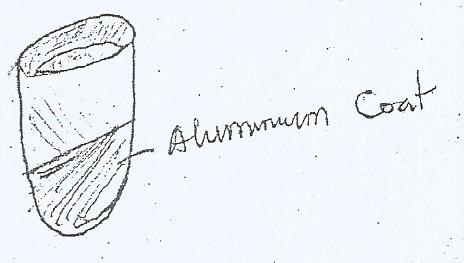 Aluminum Coat